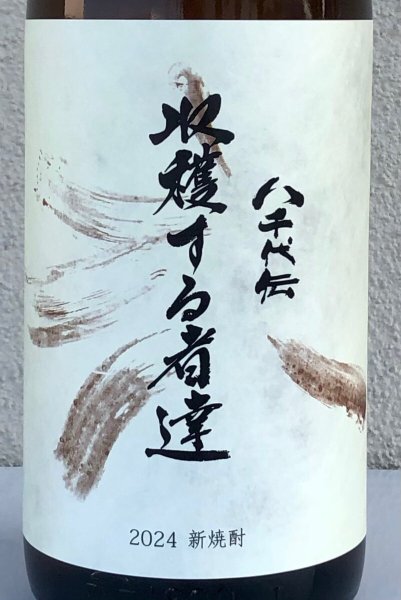 八千代伝
収穫する者達
2024 新焼酎